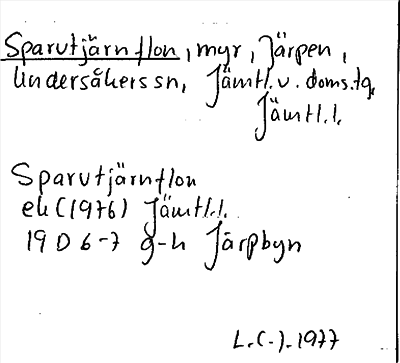 Sparutjärnflon, myr, Järpen,
Undersåkers sn, Jämtl. v. doms.tg,
Jämtl.l.
Sparutjärnflon
ek (1976) Jämtl.l.
19 D 6-7 g-h Järpbyn
L.(-). 1977